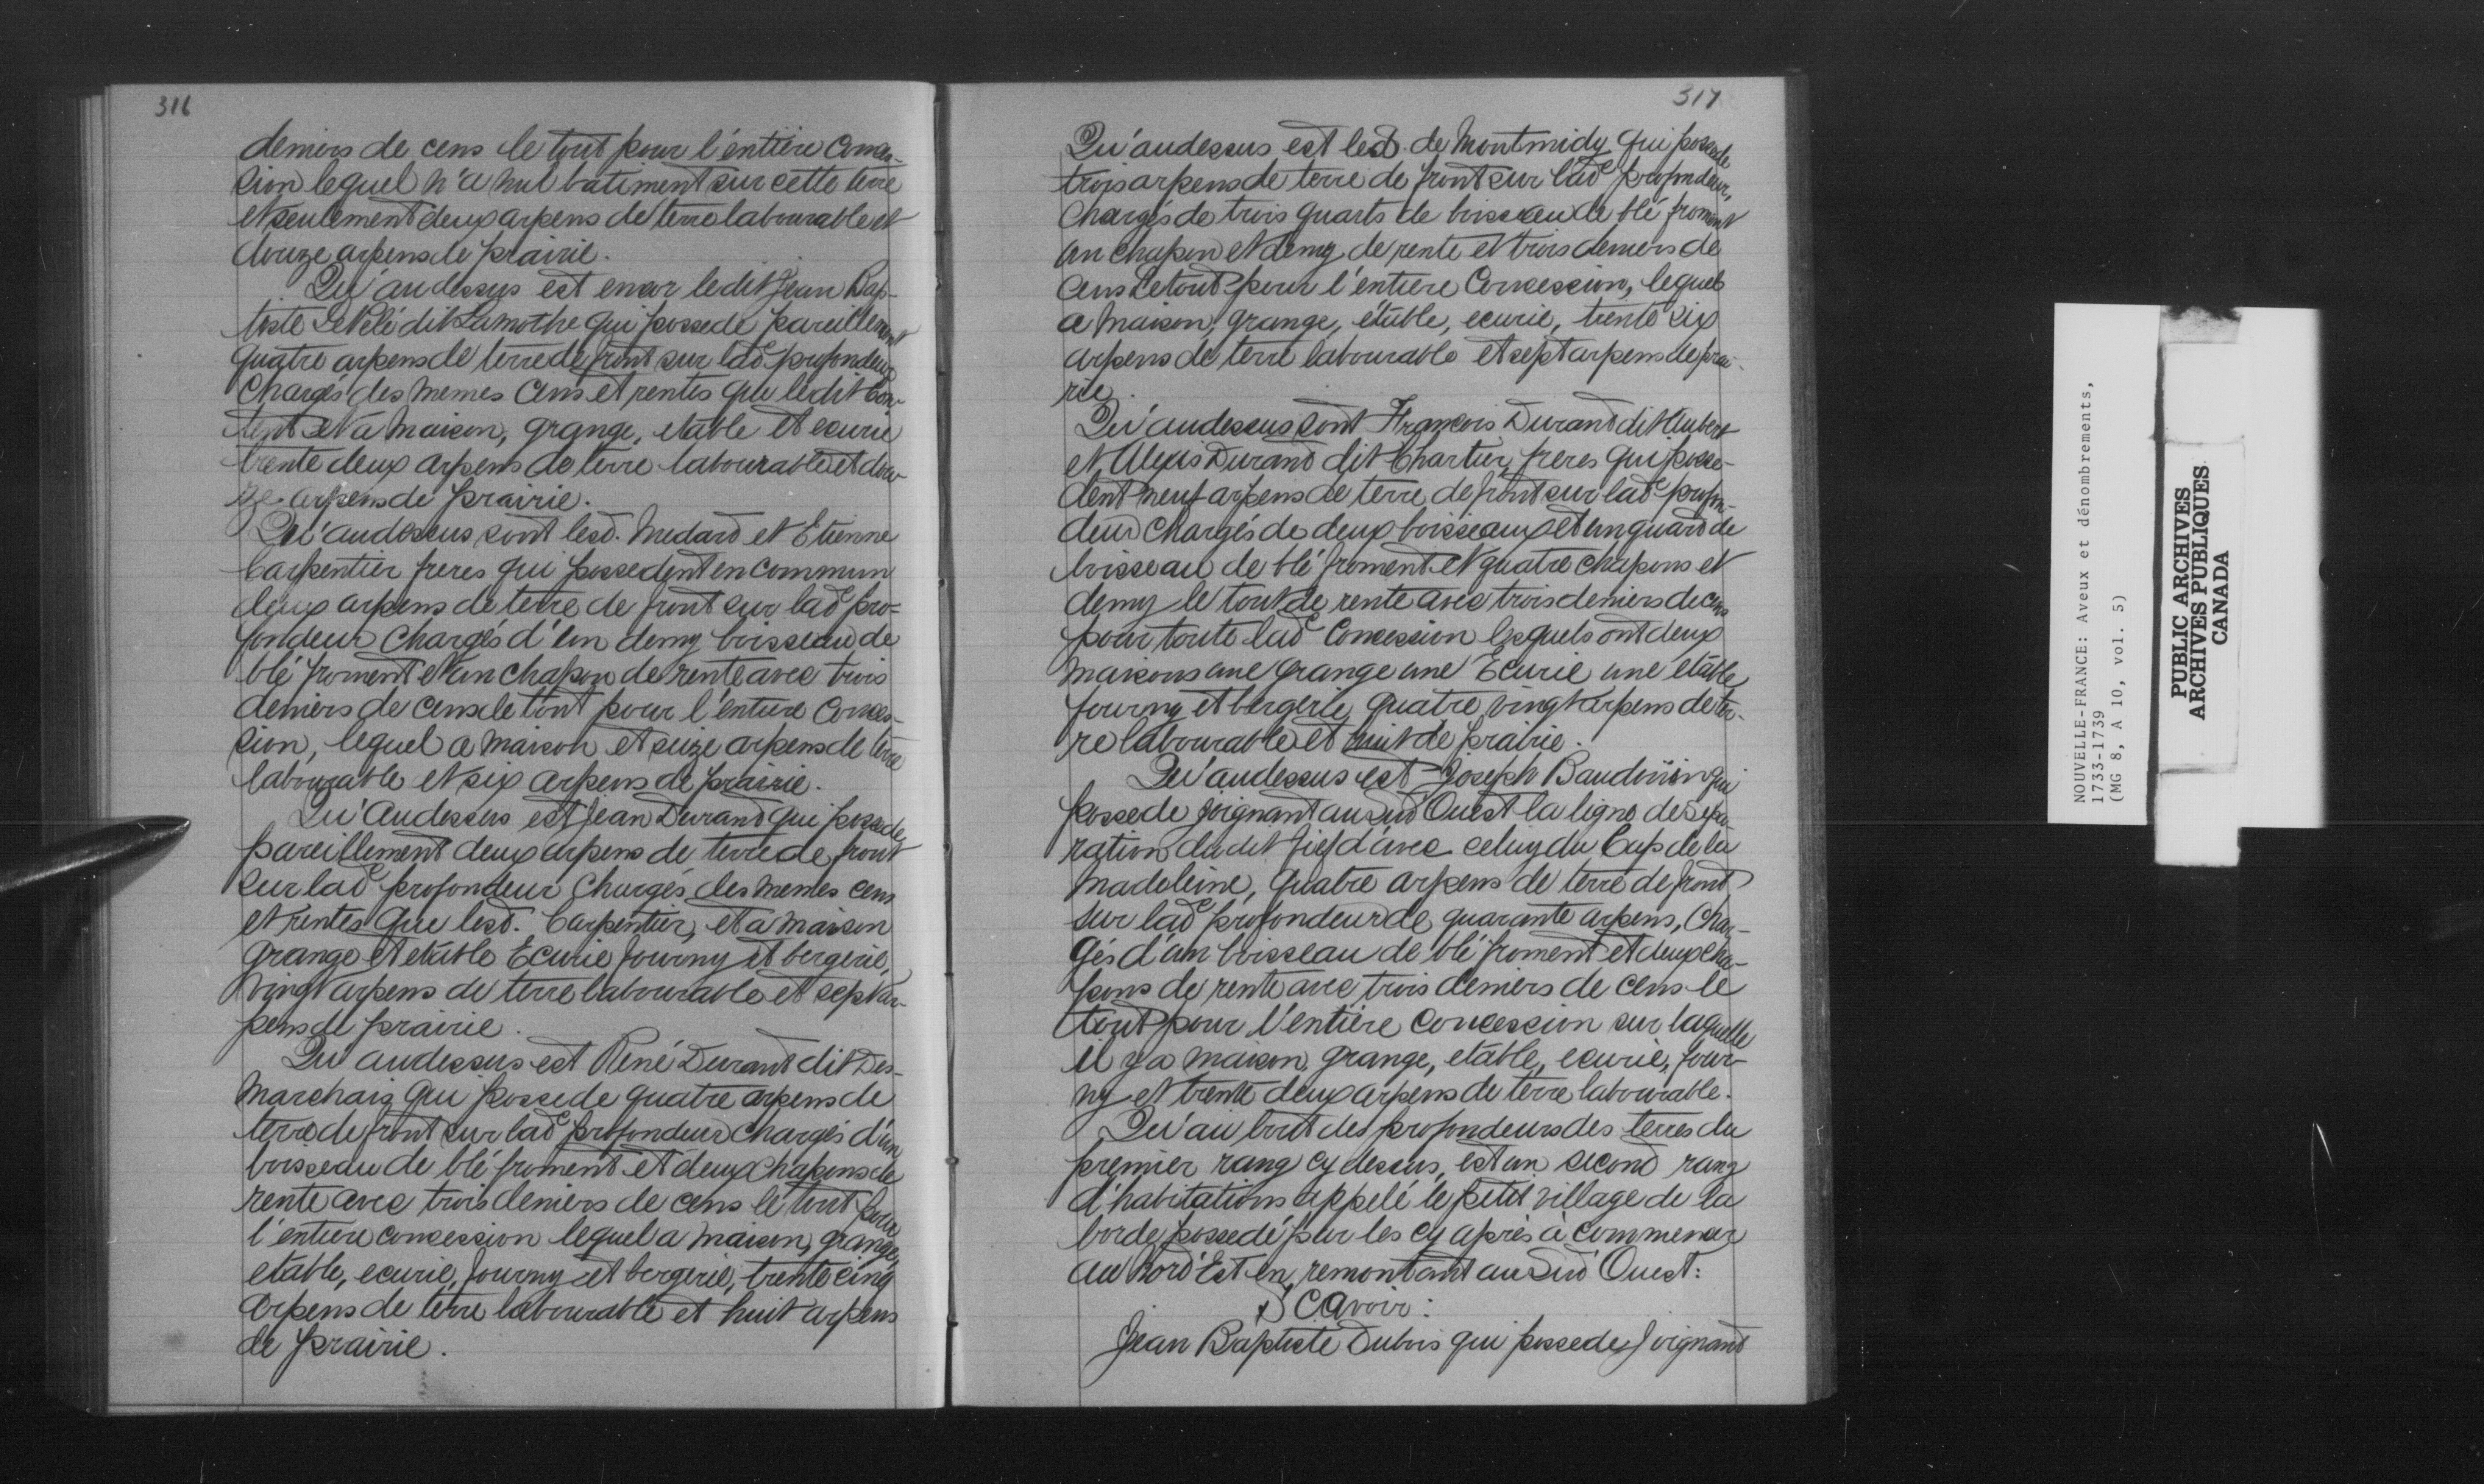 316
deniers de cens le tout pour l'éntiére Conces-
sion lequel n'a nul batiment sur cette terre
et seulement deux arpens de terre labourable et
douze arpens de prairie.
Qu'au dessus est encor ledit Jean Bap-
tiste Le Pelé dit Lamothe qui possede pareillement
quatre arpens de terre de front sur lade profondeur
Chargés des memes Cens et rentes que ledit Cou-
tent et a maison, grange, etable et ecurie
trente deux arpens de terre labourable et dou-
ze arpens de prairie.
Qu'audessus sont lesd. Medard et Etienne
Carpentier freres qui possedent en commun
deux arpens de terre de front sur lade pro=
fondeur Chargés d'un demy boisseau de
blé froment et un chapon de rente avec trois
deniers de cens le tout pour l'entiere Conces-
sion, lequel a maison et seize arpens de terre
labourable et six arpens de prairie.
Qu'Audessus est Jean Durand qui possede
pareillement deux arpens de terre de front
sur lade profondeur Chargés des memes cens
et rentes que lesd. Carpentier, et a maison
grange et etable Ecurie fourny et bergerie,
vingt arpens de terre labourable et sept ar-
pens de prairie.
Qu'audessus est René Durand dit Des-
Marchais qui possede quatre arpens de
terre de front sur lade profondeur Chargés d'un
boisseau de blé froment et deux Chapons de
rente avec trois deniers de cens le tout pour
l'entiere concession lequel a maison, grange,
etable, ecurie, fourny et bergerie, trente cinq
arpens de terre labourable et huit arpens
de prairie.
317
Qu'audessus est led. de Montmidy qui possede
trois arpens de terre de front sur lade profondeur,
Chargés de trois quarts de boisseau de blé froment
un chapon et demy de rente et trois deniers de
Cens Le tout pour l'entiere Concession, lequel
a maison, grange, étable, ecurie, trente six
arpens de terre labourable et sept arpens de prai-
rie.
Qu'audessus sont François Durand dit Aubert
et Alexis Durand dit Chartier, freres qui posse-
dent neuf arpens de terre de front sur lade profon-
deur Chargés de deux boisseaux et un quard de
boisseau de blé froment et quatre chapons et
demy le tout de rente avec trois deniers de cens
pour toute lade Concession lesquels ont deux
maisons une grange une Ecurie une etable
fourny et bergerie quatre vingt arpens de ter-
re labourable et huit de prairie.
Qu'audessus est Joseph Baudoüin qui
possede joignant au Sud Ouest la ligne de Sepa-
ration du dit fief d'avec celuy du Cap de la
Madeleine, quatre arpens de terre de front
sur lade profondeur de quarante arpens, Char-
gés d'un boisseau de blé froment et deux cha-
pons de rente avec trois deniers de cens le
tout pour l'entiére Concession sur laquelle
il y a maison, grange, etable, ecurie, four-
ny et trente deux arpens de terre labourable.
Qu'au bout des profondeurs des terres du
premier rang cy dessus, est un second rang
d'habitations appelé le petit village de la
borde possedé par les cy après à commencer
au Nord Est en remontant au Sud Ouest:
Scavoir:
Jean Baptiste Dubois qui possede Joignant
NOUVELLE-FRANCE: Aveux et dénombrements,
1733-1739
(MG 8, A 10, vol. 5)
PUBLIC ARCHIVES
ARCHIVES PUBLIQUES
CANADA